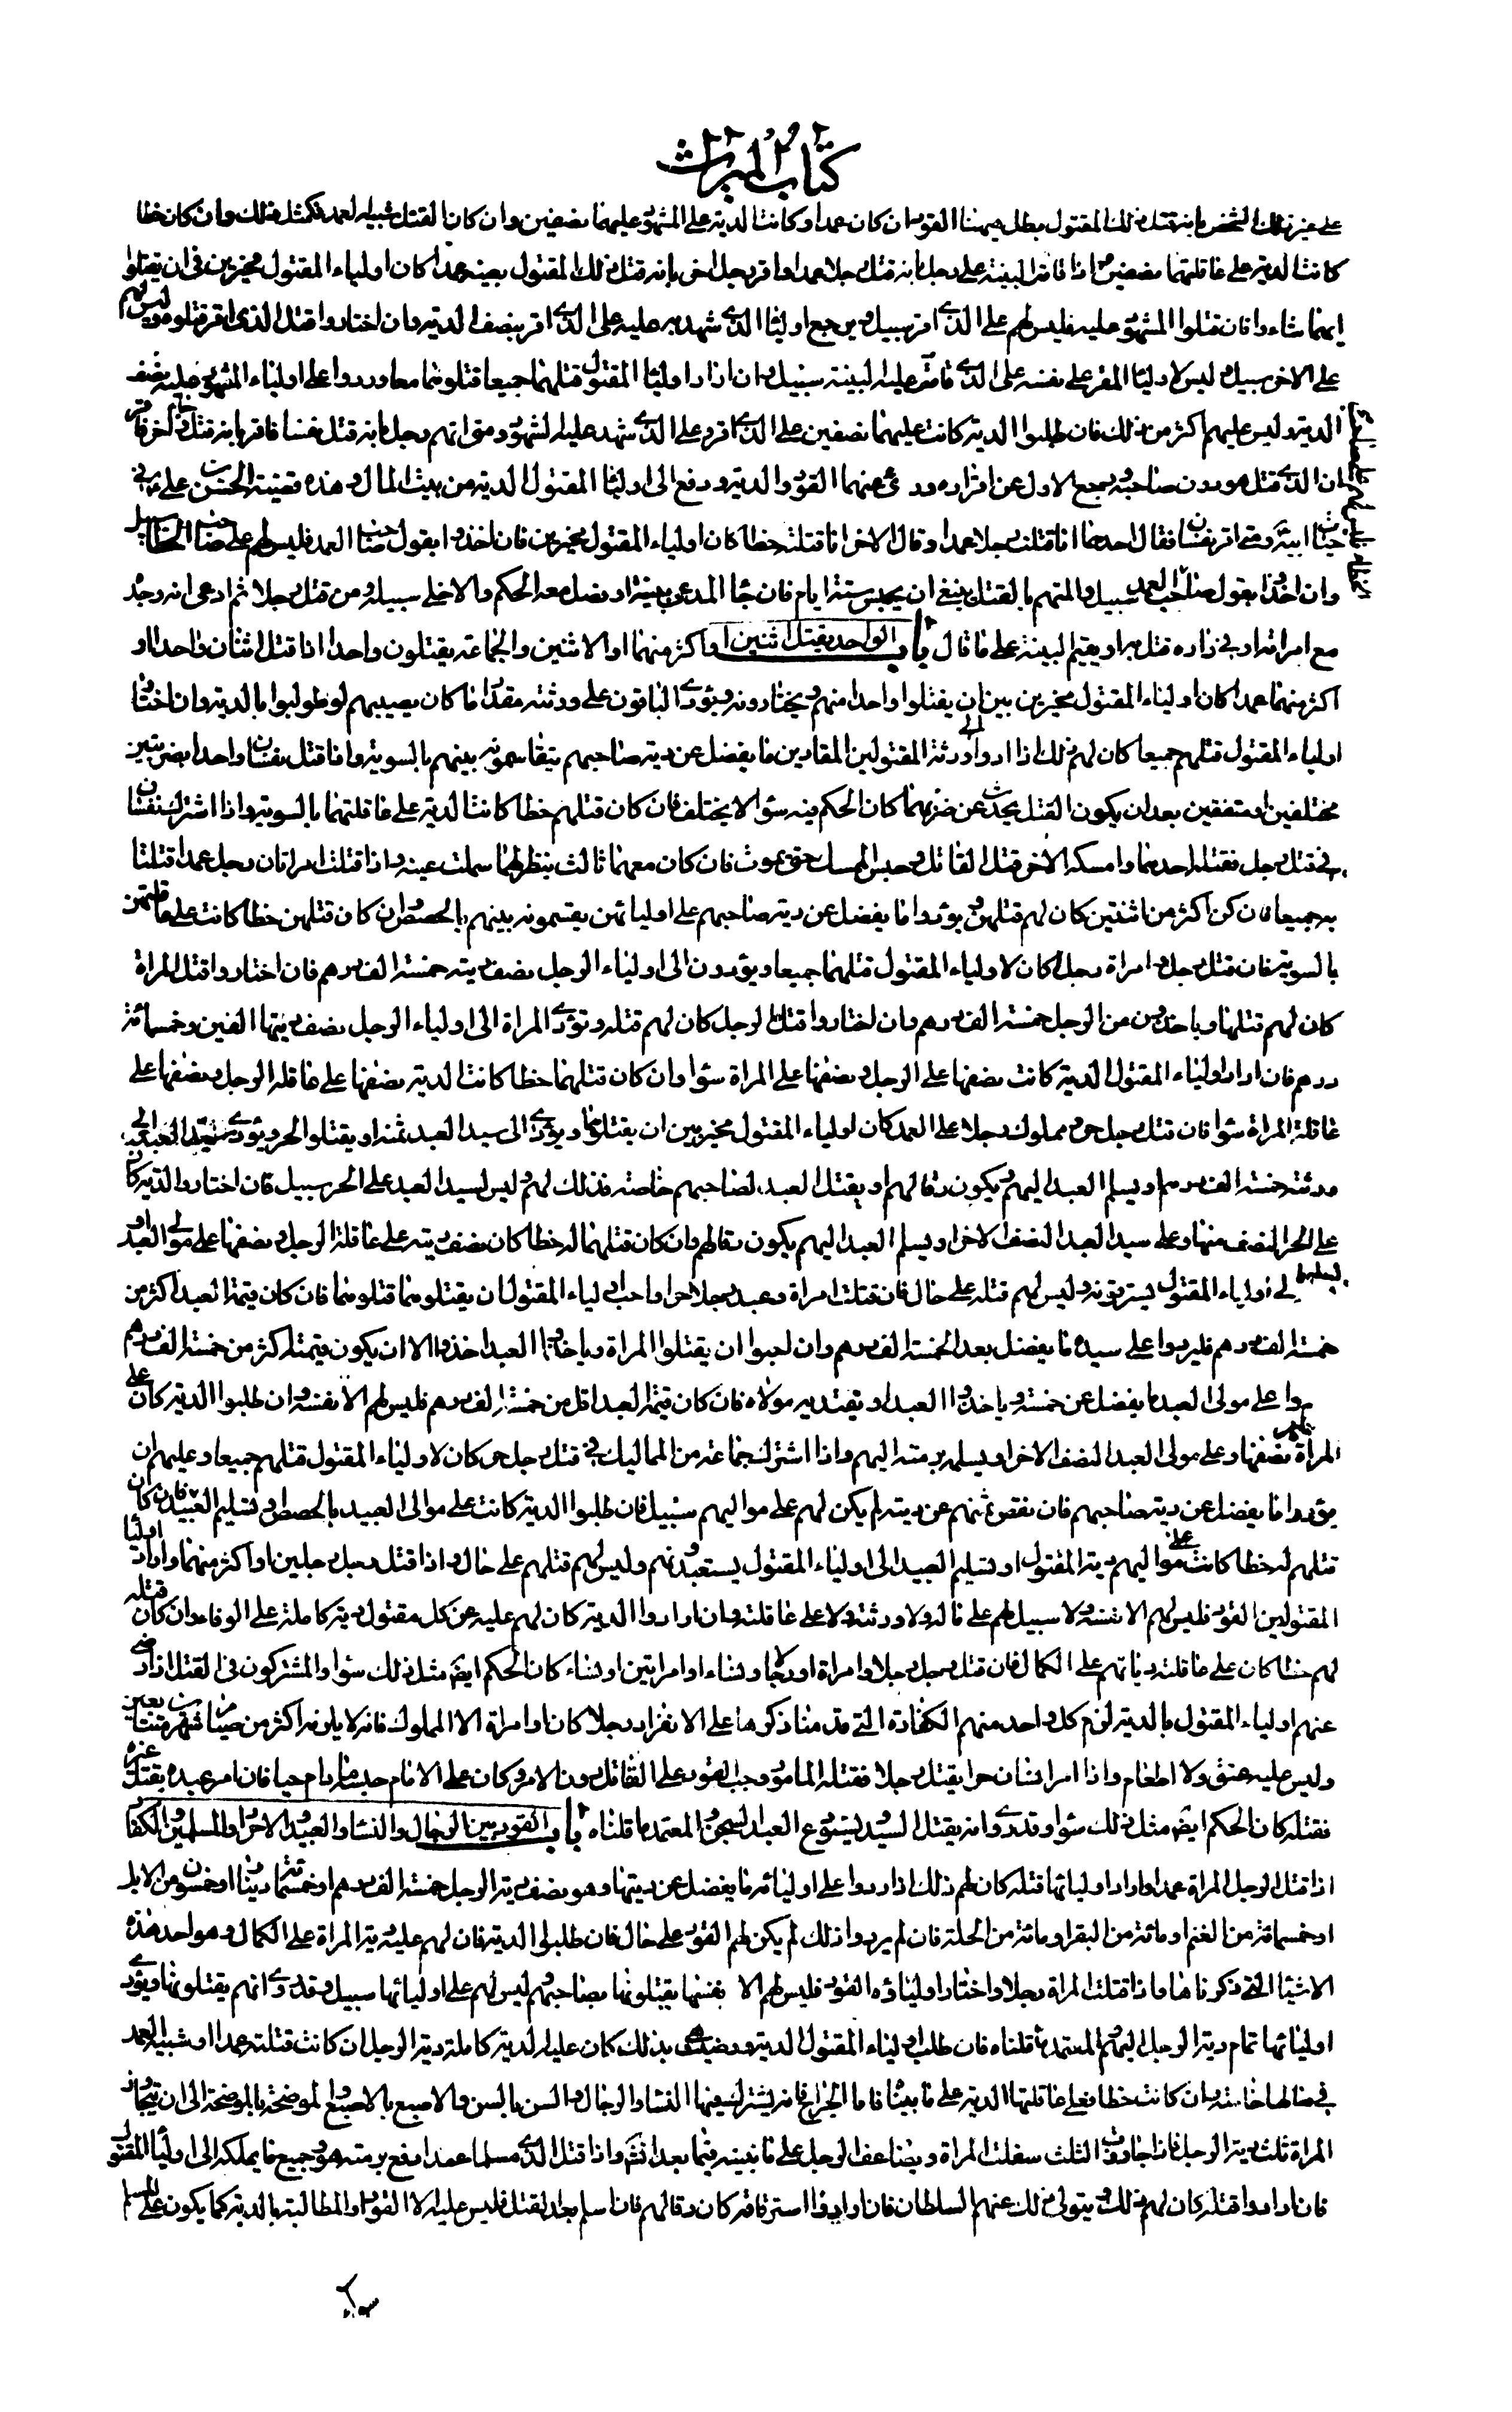 كتاب الميراث
على غير ذلك الشخص بانه قتل ذلك المقتول بطل هيهنا القود ان كان عمدا و كانت الدية على المشهود عليهما نصفين وان كان القتل شبيه العمد فكمثل ذلك وان كان خطا
كانت الدية على عاقلتهما نصفين و اذا قامت البينة على رجل بانه قتل رجلا عمدا واقر رجل اخر بانه قتل ذلك المقتول بعينه عمدا كان اولياء المقتول مخيرين في ان يقتلوا
ايهما شاءوا فان قتلوا المشهود عليه فليس لهم على الذي اقر سبيل و يرجع اولياء الذي شهد عليه على الذي اقر بنصف الدية وان اختاروا قتل الذي اقر قتلوه وليس لهم
على الاخر سبيل و ليس لاولياء المقر على نفسه على الذي قامت عليه البينة سبيل وان ارادوا اولياء المقتول قتلهما جميعا قتلوهما معا وردوا على اولياء المشهود عليه نصف
الدية وليس عليهم اكثر من ذلك فان طلبوا الدية كانت عليهما نصفين على الذي اقر و على الذي شهد عليه الشهود و متى اتهم رجل بانه قتل نفسا فاقر بانه قتل و جاء اخر فاقر
ان الذي قتل هو دون صاحبه و رجع الاول عن اقراره درئ عنهما القود والدية و دفع الى اولياء المقتول الدية من بيت المال و هذه قضية الحسن بن علي في
حياة ابيه و متى اقر نفسان فقال احدهما انا قتلت رجلا عمدا و قال الاخر انا قتلته خطا كان اولياء المقتول مخيرين فان اخذوا بقول صاحب العمد فليس لهم على صاحب الخطا سبيل
وان اخذوا بقول صاحب الخطا فليس لهم على صاحب العمد سبيل والمتهم بالقتل ينبغي ان يحبس ستة ايام فان جاء المدعي ببينة او فصل معه الحكم والا خلي سبيله و من قتل رجلا ثم ادعى انه وجده
مع امراته او في داره قتل به او يقيم البينة على ما قال باب الواحد يقتل اثنين او اكثر منهما او الاثنين والجماعة يقتلون واحدا اذا قتل اثنان واحدا او
اكثر منهما عمدا كان اولياء المقتول مخيرين بين ان يقتلوا واحدا منهم يختارونه و يؤدي الباقون على ورثته مقدار ما كان يصيبهم لو طولبوا بالدية وان اختار
اولياء المقتول قتلهم جميعا كان لهم ذلك اذا ادوا الى ورثة المقتولين المقادين ما يفضل عن دية صاحبهم يتقاسمونه بينهم بالسوية و اذا قتل نفسان واحدا بضربتين
مختلفتين او متفقتين بعد ان يكون القتل يحدث عن ضربهما كان الحكم فيه سواء لا يختلف فان كان قتلهم خطا كانت الدية على عاقلتهما بالسوية و اذا اشترك نفسان
في قتل رجل فقتله احدهما وامسكه الاخر قتل القاتل و حبس الممسك حتى يموت فان كان معهما ثالث ينظر لهما سملت عينه و اذا قتلت امراتان رجلا عمدا قتلتا
به جميعا فان كن اكثر من اثنتين كان لهم قتلهن و يؤدوا ما يفضل عن دية صاحبهم على اوليائهن يقتسمونه بينهم بالحصص وان كان قتلهن خطا كانت على عاقلتهن
بالسوية فان قتل رجل و امراة رجلا كان لاولياء المقتول قتلهما جميعا و يؤدون الى اولياء الرجل نصف ديته خمسة الف درهم فان اختاروا قتل المراة
كان لهم قتلها و ياخذون من الرجل خمسة الف درهم وان اختاروا قتل الرجل كان لهم قتله و تؤدي المراة الى اولياء الرجل نصف ديتها الفين و خمسمائة
درهم فان اراد اولياء المقتول الدية كانت نصفها على الرجل و نصفها على المراة سواء وان كان قتلهما خطا كانت الدية نصفها على عاقلة الرجل و نصفها على
عاقلة المراة سواء فان قتل رجل حر و مملوك رجلا على العمد كان اولياء المقتول مخيرين بين ان يقتلوهما و يؤدي الى سيد العبد ثمنه او يقتلوا الحر و يؤدي سيد العبد الى
ورثته خمسة الف درهم او يسلم العبد اليهم و يكون رقا لهم او يقتل العبد لصاحبهم خاصة فذلك لهم و ليس لسيد العبد على الحر سبيل فان اختاروا الدية كان
على الحر النصف منها و على سيد العبد النصف الاخر او يسلم العبد اليهم يكون رقا لهم وان كان قتلهما له خطا كان نصف ديته على عاقلة الرجل و نصفها على موالي العبد او
يسلموه الى اولياء المقتول يسترقونه و ليس لهم قتله على حال فان قتلت امراة و عبد رجلا حرا و احب اولياء المقتول ان يقتلوهما قتلوهما فان كان قيمة العبد اكثر من
خمسة الف درهم فليردوا على سيده ما يفضل بعد الخمسة الف درهم وان احبوا ان يقتلوا المراة و ياخذوا العبد اخذوا الا ان يكون قيمته اكثر من خمسة الف درهم
ردوا على مولى العبد ما يفضل عن خمسة و ياخذوا العبد او يفتديه مولاه فان كان قيمة العبد اقل من خمسة الف درهم فليس لهم الا نفسه وان طلبوا الدية كان على
المراة نصفها و على مولى العبد النصف الاخر او يسلمه برمته اليهم واذا اشترك جماعة من المماليك في قتل رجل حر كان لاولياء المقتول قتلهم جميعا و عليهم ان
يؤدوا ما يفضل عن دية صاحبهم فان نقص ثمنهم عن ديته لم يكن لهم على مواليهم سبيل فان طلبوا الدية كانت على موالي العبيد بالحصص او تسليم العبيد فان كان
قتلهم له خطا كانت على مواليهم دية المقتول او تسليم العبيد الى اولياء المقتول يستعبدونهم و ليس لهم قتلهم على حال و اذا قتل رجل رجلين او اكثر منهما و اراد اولياء
المقتولين القود فليس لهم الا نفسه و لا سبيل لهم على ماله و لا ورثته و لا على عاقلته وان ارادوا الدية كان لهم عليه عن كل مقتول دية كاملة على الوفاء وان كان قتله
لهم خطا كان على عاقلته دياتهم على الكمال فان قتل رجل رجلا و امراة او رجالا و نساء او امراتين او نساء كان الحكم ايضا مثل ذلك سواء والمشتركون في القتل اذا رضي
عنهم اولياء المقتول بالدية لزم كل واحد منهم الكفارة التي قد منا ذكرها على الانفراد رجلا كان او امراة الا المملوك فانه لا يلزمه اكثر من صيام شهرين متتابعين
و ليس عليه عتق و لا اطعام و اذا امر انسان حرا بقتل رجل فقتله المامور وجب القود على القاتل دون الامر و كان على الامام حبسه ما دام حيا فان امر عبده بقتل غيره
فقتله كان الحكم ايضا مثل ذلك سواء و قد روي انه يقتل السيد و يستودع العبد السجن و المعتمد ما قلناه باب القود بين الرجال والنساء والعبيد والاحرار والمسلمين والكفار
اذا قتل الرجل المراة عمدا و اراد اولياؤها قتله كان لهم ذلك اذا ردوا على اوليائه ما يفضل عن ديتها و هو نصف دية الرجل خمسة الف درهم او خمسمائة دينار او خمسون من الابل
او خمسمائة من الغنم او مائة من البقر او مائة من الحلة فان لم يردوا ذلك لم يكن لهم القود على حال فان طلبوا الدية فان لهم عليه دية المراة على الكمال و هو احد هذه
الاشياء التي ذكرناها واذا قتلت المراة رجلا و اختار اولياؤه القود فليس لهم الا نفسها يقتلونها بصاحبهم و ليس لهم على اوليائها سبيل و قد روي انهم يقتلونها و يؤدي
اولياؤها تمام دية الرجل اليهم والمعتمد ما قلناه فان طلب اولياء المقتول الدية و رضيت هي بذلك كان عليها الدية كاملة دية الرجل ان كانت قتلته عمدا او شبيه العمد
في مالها خاصة وان كانت خطا فعلى عاقلتها الدية على ما بيناه فاما الجراح فانه يشترك فيها النساء والرجال السن بالسن والاصبع بالاصبع والموضحة بالموضحة الى ان تتجاوز
المراة ثلث دية الرجل فاذا جاوزت الثلث سفلت المراة و يضاعف الرجل على ما نبينه فيما بعد انشاء الله واذا قتل الذمي مسلما عمدا دفع برمته هو و جميع ما يملكه الى اولياء المقتول
فان ارادوا قتله كان لهم ذلك و يتولى ذلك عنهم السلطان فان ارادوا استرقاقه كان رقا لهم فان اسلم بعد القتل فليس عليه الا القود او المطالبة بالدية كما يكون على المسلم